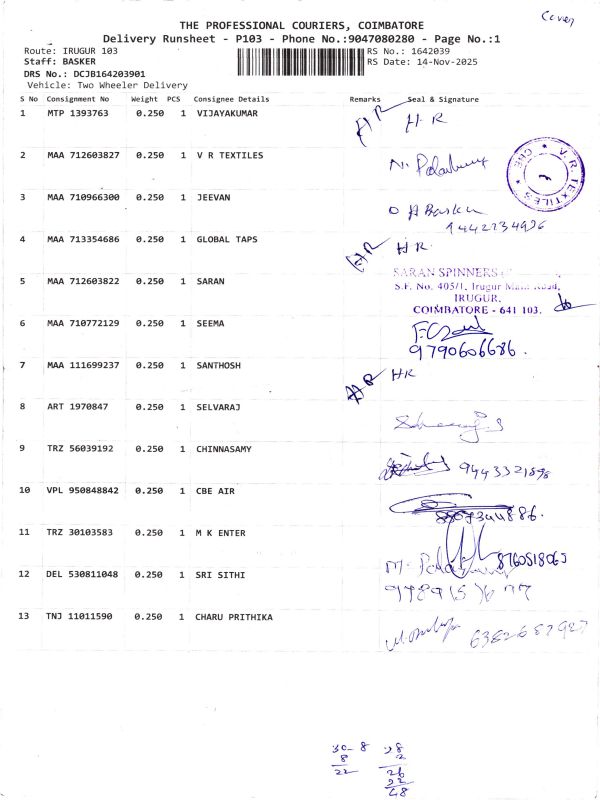 Cover
THE PROFESSIONAL COURIERS, COIMBATORE
Delivery Runsheet - P103 - Phone No.:9047080280 - Page No.:1
Route: IRUGUR 103
RS No.: 1642039
Staff: BASKER
RS Date: 14-Nov-2025
DRS No.: DCJB164203901
Vehicle: Two Wheeler Delivery
S No Consignment No Weight PCS Consignee Details Remarks Seal & Signature
1 MTP 1393763 0.250 1 VIJAYAKUMAR HR HR
2 MAA 712603827 0.250 1 V R TEXTILES
V.R. TEXTILES CBE
3 MAA 710966300 0.250 1 JEEVAN
4 MAA 713354686 0.250 1 GLOBAL TAPS HR HR
5 MAA 712603822 0.250 1 SARAN
SARAN SPINNERS
S.F. No. 405/1, Irugur Main Road,
IRUGUR,
COIMBATORE - 641 103.
6 MAA 710772129 0.250 1 SEEMA
9790606686.
7 MAA 111699237 0.250 1 SANTHOSH HR HR
8 ART 1970847 0.250 1 SELVARAJ
9 TRZ 56039192 0.250 1 CHINNASAMY
10 VPL 950848842 0.250 1 CBE AIR
11 TRZ 30103583 0.250 1 M K ENTER
12 DEL 530811048 0.250 1 SRI SITHI
13 TNJ 11011590 0.250 1 CHARU PRITHIKA